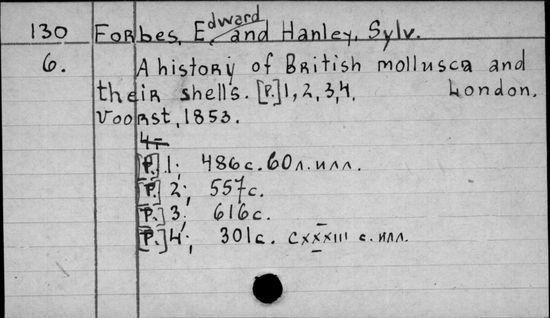 130 Forbes, Edward and Hanley, Sylv.
6. A history of British mollusca and
their shells. [P.] 1, 2, 3, 4. London.
Voorst, 1853.
4-
[P.] 1; 486 с. 60 л. илл.
[P.] 2; 557 с.
[P.] 3; 616 с.
[P.] 4; 301 с. CXXXIII с. илл.